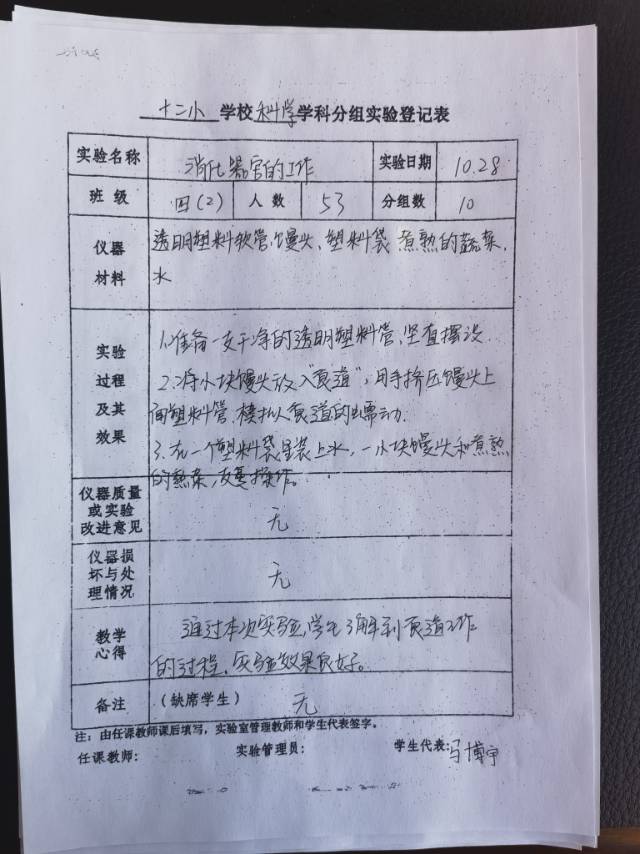 十二小 学校 科学 学科分组实验登记表
实验名称 消化器官的工作 实验日期 10.28
班 级 四(2) 人 数 53 分组数 10
仪器材料 透明塑料软管、馒头、塑料袋、煮熟的蔬菜、
水
实验过程及其效果 1.准备一支干净的透明塑料管,竖直摆设.
2.将小块馒头放入"食道",用手挤压馒头上
面塑料管,模拟人食道的蠕动.
3.在一个塑料袋里装上水,一小块馒头和煮熟
的熟菜,反复操作。
仪器质量
或实验
改进意见 无
仪器损
坏与处
理情况 无
教学心得 通过本次实验,学生了解到食道工作
的过程,实验效果良好。
备注 (缺席学生) 无
注:由任课教师课后填写,实验室管理教师和学生代表签字。
任课教师: 实验管理员: 学生代表:马博宇